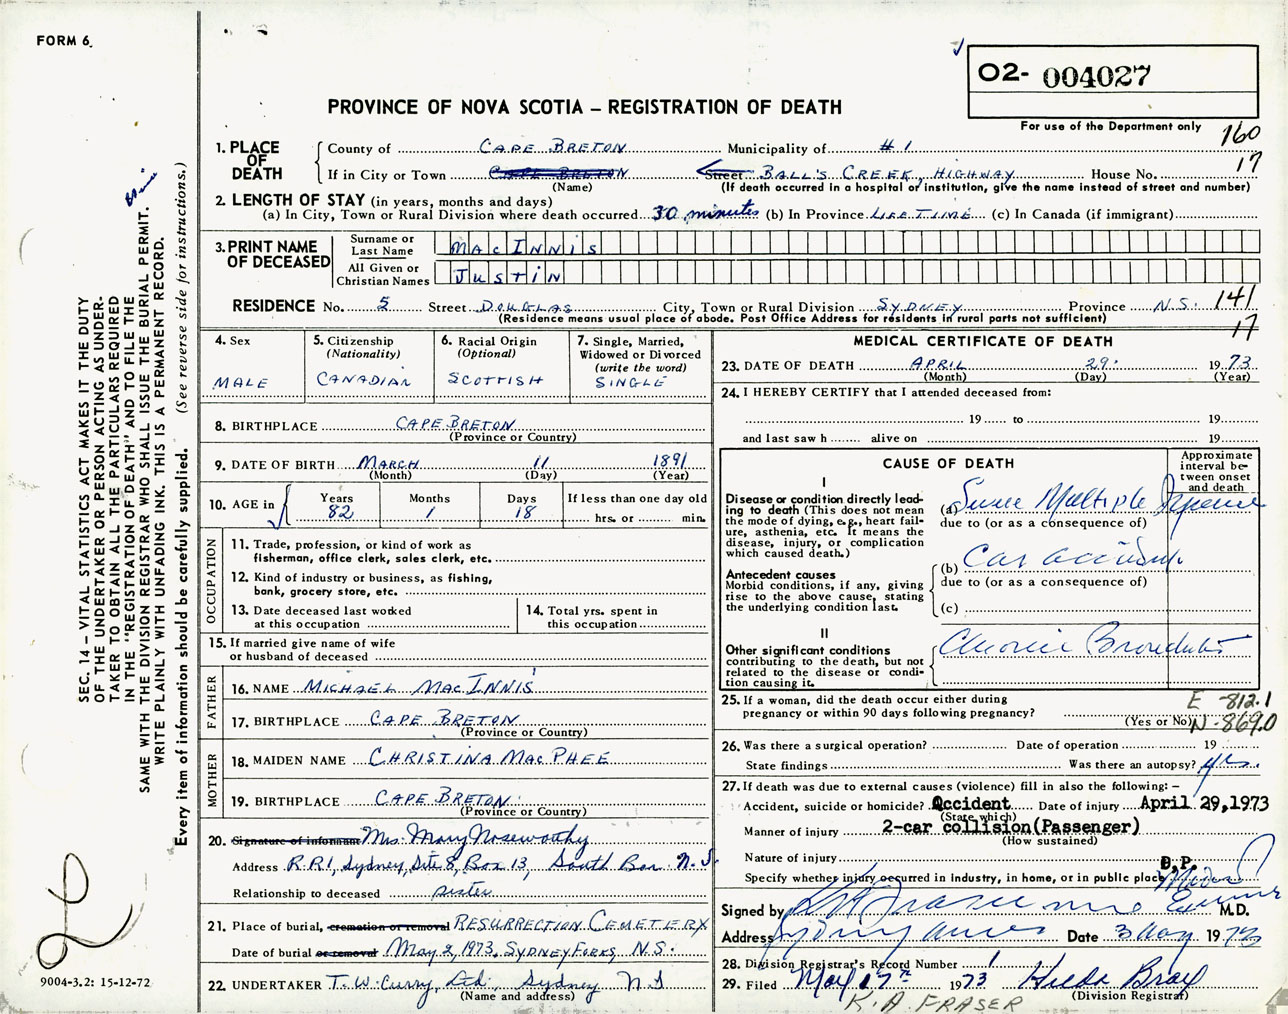 FORM 6.
02- 004027
PROVINCE OF NOVA SCOTIA – REGISTRATION OF DEATH
For use of the Department only
160
17
1. PLACE OF DEATH
County of CAPE BRETON Municipality of #1
If in City or Town CAPE BRETON Street BALL'S CREEK, HIGHWAY House No.
(Name) (If death occurred in a hospital or institution, give the name instead of street and number)
2. LENGTH OF STAY (in years, months and days)
(a) In City, Town or Rural Division where death occurred 30 minutes (b) In Province LIFETIME (c) In Canada (if immigrant)
3. PRINT NAME OF DECEASED
Surname or Last Name MacInnis
All Given or Christian Names Justin
RESIDENCE No. 5 Street DOUGLAS City, Town or Rural Division SYDNEY Province N.S. 141
(Residence means usual place of abode. Post Office Address for residents in rural parts not sufficient)
17
4. Sex
MALE
5. Citizenship
(Nationality)
CANADIAN
6. Racial Origin
(Optional)
SCOTTISH
7. Single, Married,
Widowed or Divorced
(write the word)
SINGLE
8. BIRTHPLACE CAPE BRETON
(Province or Country)
9. DATE OF BIRTH MARCH 11 1891
(Month) (Day) (Year)
10. AGE in
Years Months Days If less than one day old
82 1 18 hrs. or min.
OCCUPATION
11. Trade, profession, or kind of work as
fisherman, office clerk, sales clerk, etc.
12. Kind of industry or business, as fishing,
bank, grocery store, etc.
13. Date deceased last worked
at this occupation
14. Total yrs. spent in
this occupation
15. If married give name of wife
or husband of deceased
FATHER
16. NAME MICHAEL MACINNIS
17. BIRTHPLACE CAPE BRETON
(Province or Country)
MOTHER
18. MAIDEN NAME CHRISTINA MACPHEE
19. BIRTHPLACE CAPE BRETON
(Province or Country)
20. Signature of informant Mrs. Mary Noseworthy
Address R.R1, Sydney, Site 8, Box 13, South Bar N.S.
Relationship to deceased sister
21. Place of burial, cremation or removal RESURRECTION CEMETERY
Date of burial or removal May 2, 1973, SYDNEY FORKS, N.S.
22. UNDERTAKER T. W. Curry, Ltd. Sydney N S
(Name and address)
MEDICAL CERTIFICATE OF DEATH
23. DATE OF DEATH APRIL 29. 1973
(Month) (Day) (Year)
24. I HEREBY CERTIFY that I attended deceased from:
19 to 19
and last saw h alive on 19
CAUSE OF DEATH
Approximate
interval be-
tween onset
and death
I
Disease or condition directly lead-
ing to death (This does not mean
the mode of dying, e.g., heart fail-
ure, asthenia, etc. It means the
disease, injury, or complication
which caused death.)
(a) Multiple
due to (or as a consequence of)
Antecedent causes
Morbid conditions, if any, giving
rise to the above cause, stating
the underlying condition last.
(b) Car accident
due to (or as a consequence of)
(c)
II
Other significant conditions
contributing to the death, but not
related to the disease or condi-
tion causing it.
Chronic Bronchitis
25. If a woman, did the death occur either during
pregnancy or within 90 days following pregnancy?
(Yes or No)
E -812.1
N-869.0
26. Was there a surgical operation? Date of operation 19
State findings Was there an autopsy? yes.
27. If death was due to external causes (violence) fill in also the following: –
Accident, suicide or homicide? Accident Date of injury April 29,1973
(State which)
Manner of injury 2-car collision(Passenger)
(How sustained)
Nature of injury
Specify whether injury occurred in industry, in home, or in public place P.P.
Signed by K A Fraser M.D.
Address Sydney Mines Date 3 May 1973
28. Division Registrar's Record Number 1
29. Filed May 17th 1973 Hilda Bray
(Division Registrar)
K. A. FRASER
SEC. 14 – VITAL STATISTICS ACT MAKES IT THE DUTY
OF THE UNDERTAKER OR PERSON ACTING AS UNDER-
TAKER TO OBTAIN ALL THE PARTICULARS REQUIRED
IN THE "REGISTRATION OF DEATH" AND TO FILE THE
SAME WITH THE DIVISION REGISTRAR WHO SHALL ISSUE THE BURIAL PERMIT.
WRITE PLAINLY WITH UNFADING INK. THIS IS A PERMANENT RECORD.
Every item of information should be carefully supplied. (See reverse side for instructions.)
9004-3.2: 15-12-72